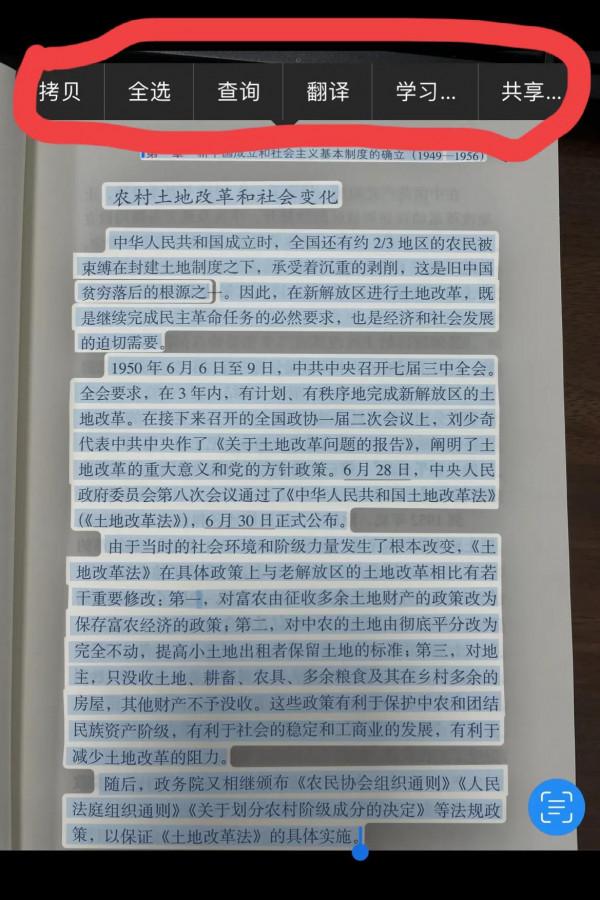 拷贝 全选 查询 翻译 学习... 共享...
第一章 新中国成立和社会主义基本制度的确立（1949—1956）
农村土地改革和社会变化
中华人民共和国成立时，全国还有约 2/3 地区的农民被
束缚在封建土地制度之下，承受着沉重的剥削，这是旧中国
贫穷落后的根源之一。因此，在新解放区进行土地改革，既
是继续完成民主革命任务的必然要求，也是经济和社会发展
的迫切需要。
1950 年 6 月 6 日至 9 日，中共中央召开七届三中全会。
全会要求，在 3 年内，有计划、有秩序地完成新解放区的土
地改革。在接下来召开的全国政协一届二次会议上，刘少奇
代表中共中央作了《关于土地改革问题的报告》，阐明了土
地改革的重大意义和党的方针政策。6 月 28 日，中央人民
政府委员会第八次会议通过了《中华人民共和国土地改革法》
（《土地改革法》），6 月 30 日正式公布。
由于当时的社会环境和阶级力量发生了根本改变，《土
地改革法》在具体政策上与老解放区的土地改革相比有若
干重要修改：第一，对富农由征收多余土地财产的政策改为
保存富农经济的政策；第二，对中农的土地由彻底平分改为
完全不动，提高小土地出租者保留土地的标准；第三，对地
主，只没收土地、耕畜、农具、多余粮食及其在乡村多余的
房屋，其他财产不予没收。这些政策有利于保护中农和团结
民族资产阶级，有利于社会的稳定和工商业的发展，有利于
减少土地改革的阻力。
随后，政务院又相继颁布《农民协会组织通则》《人民
法庭组织通则》《关于划分农村阶级成分的决定》等法规政
策，以保证《土地改革法》的具体实施。